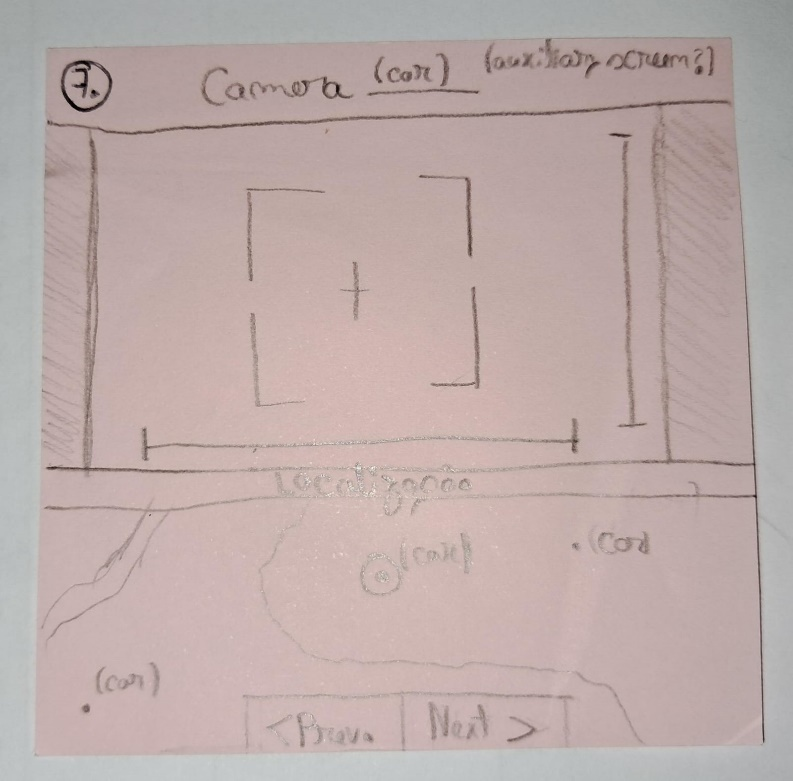 7. Camera (car) (auxiliary screen?)
Localização
(car) (car)
(car)
< Prev. Next >